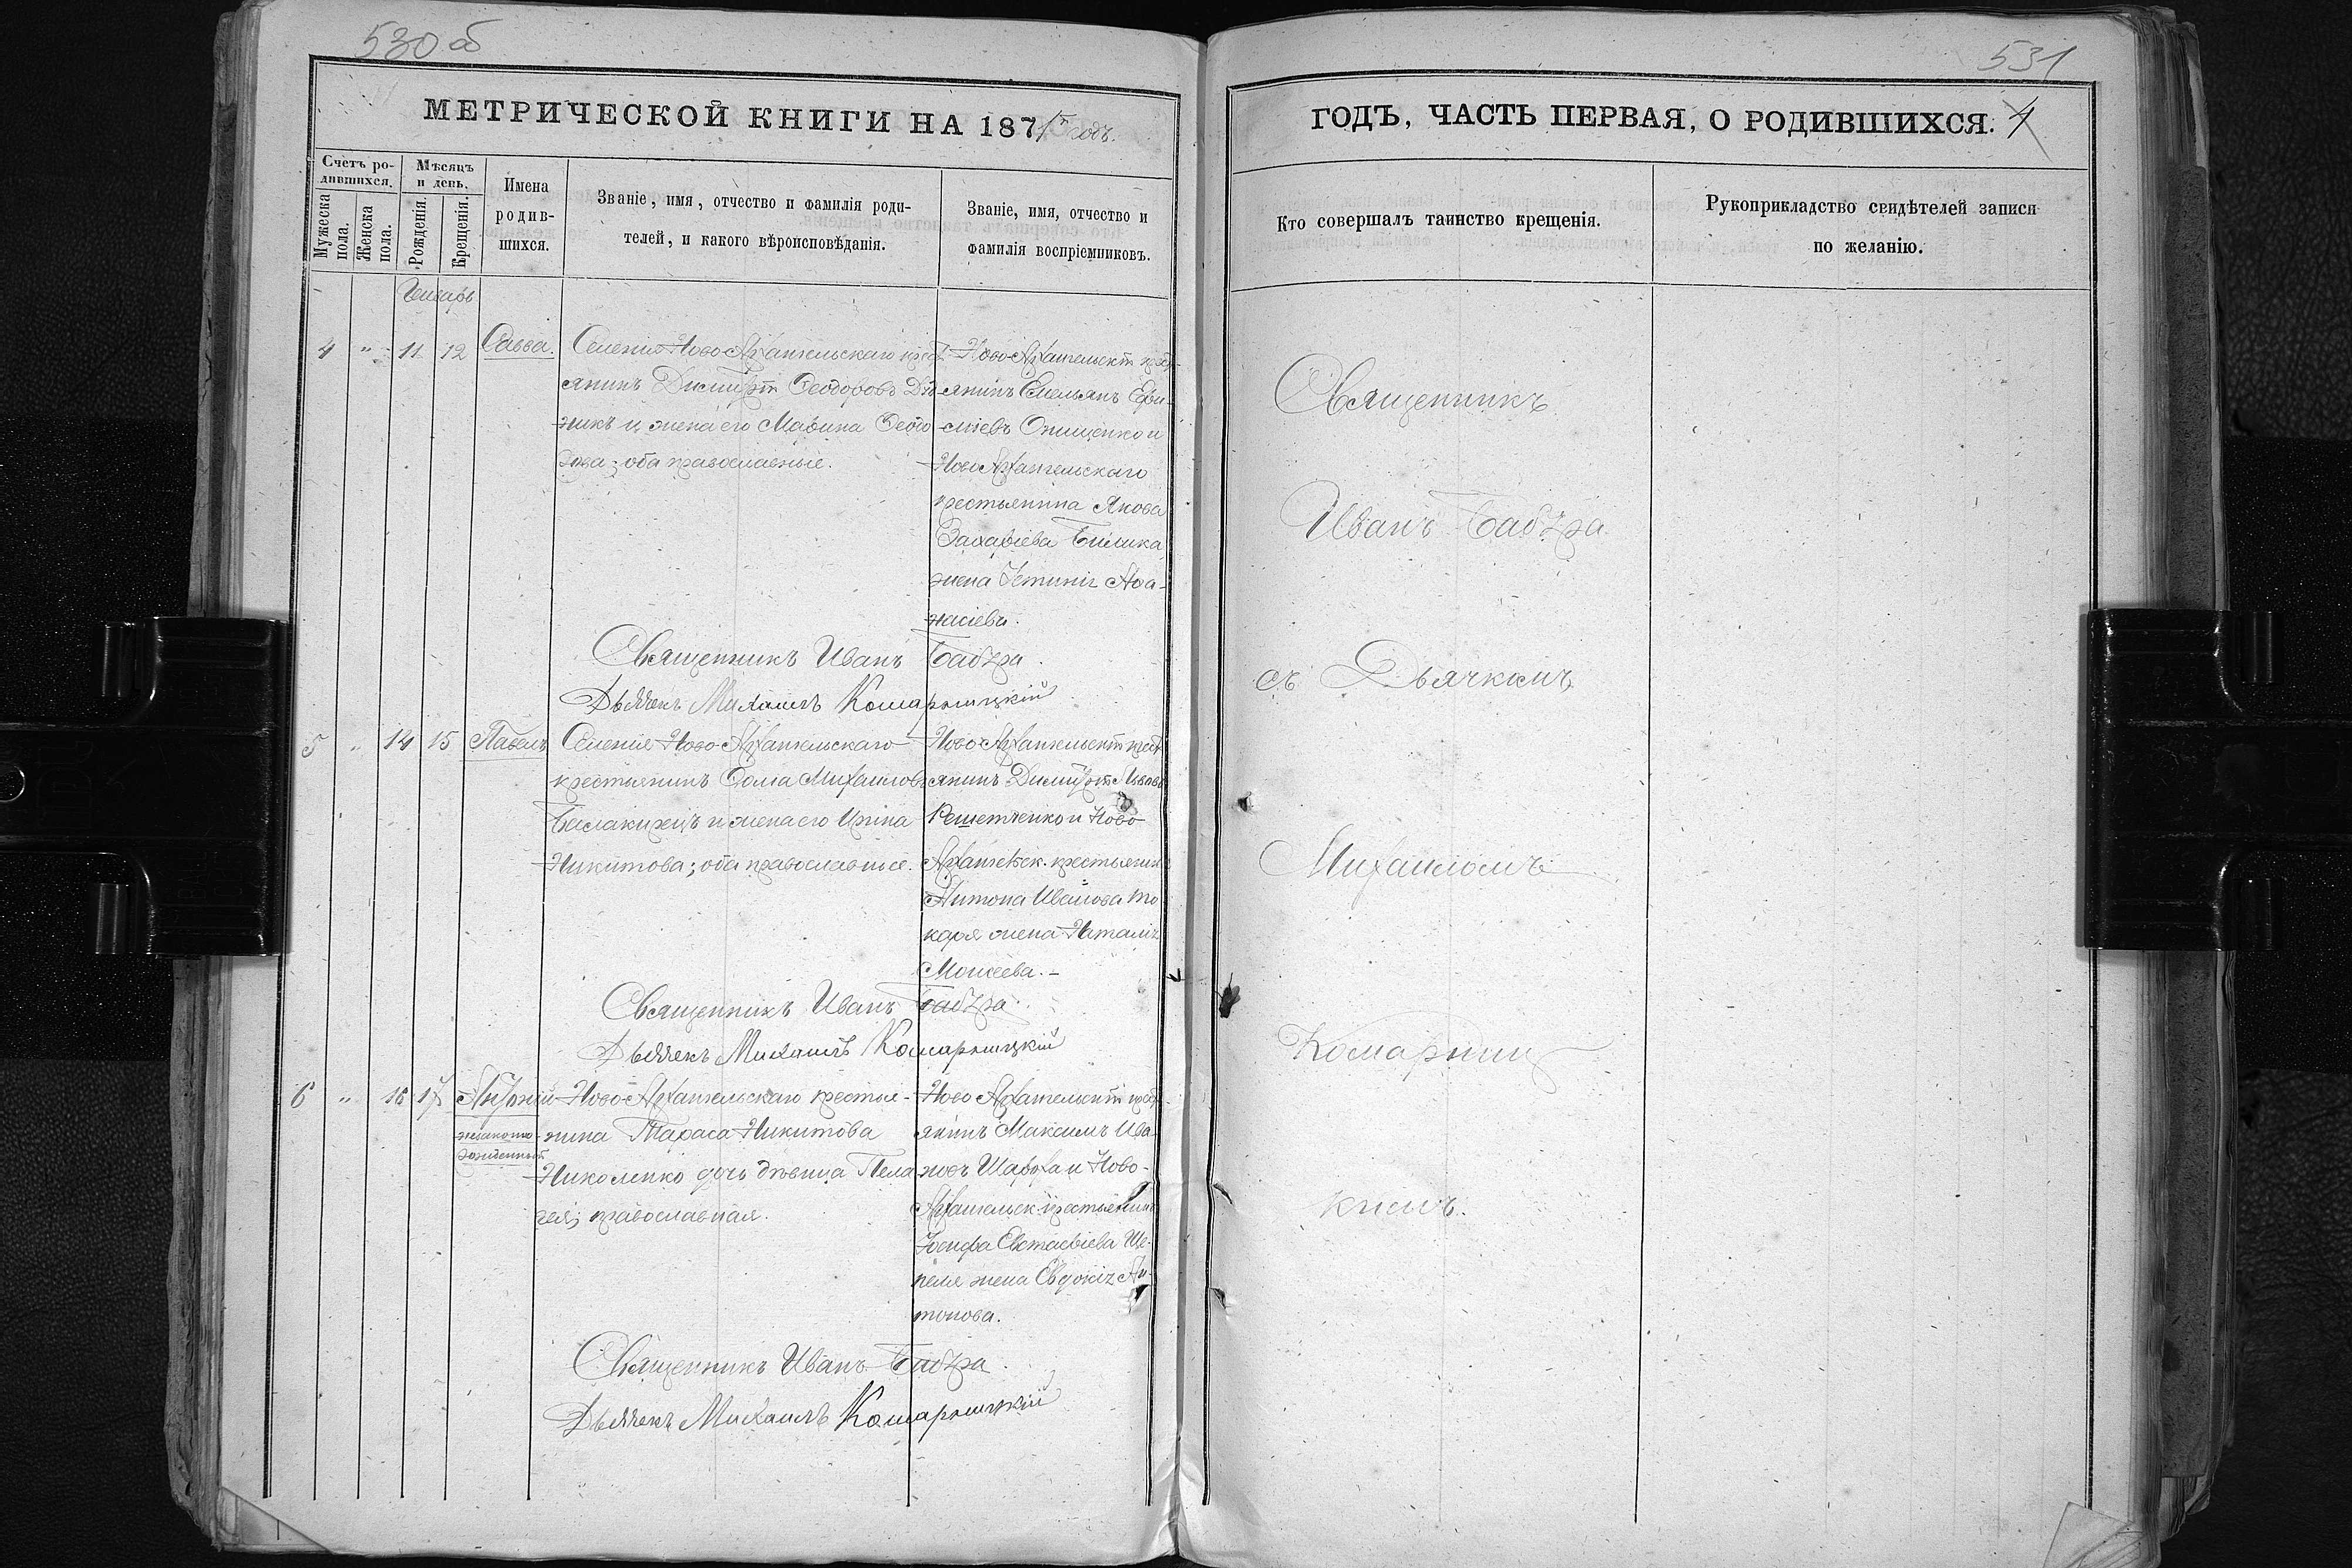 530 об
МЕТРИЧЕСКОЙ КНИГИ НА 1871й годъ.
Счетъ ро-
дившихся.
Мужеска
пола.
Женска
пола.
Мѣсяцъ
и день.
Рожденія.
Крещенія.
Имена
родив-
шихся.
Званіе, имя, отчество и фамилія роди-
телей, и какого вѣроисповѣданія.
Званіе, имя, отчество и
фамилія воспріемниковъ.
Генварь
4 " 11 12 Савва.
Селенія Ново-Архангельскаго крест-
янинъ Димитрій Ѳеодоровъ
никъ и жена его Марина Ѳеодо
рова; оба православные.
Ново-Архангельскій крест-
янинъ Емельянъ Ефи-
міевъ Онищенко и
Ново Архангельскаго
крестьянина Якова
Захаріева Билика
жена Устинія Аѳа-
насіева.
Священникъ Иванъ Бабура.
Дьячекъ Михаилъ Комарницкій
5 " 14 15 Павелъ
Селенія Ново-Архангельскаго
крестьянинъ Ѳома Михаиловъ
Билакирецъ и жена его Ирина
Никитова; оба православные.
Ново-Архангельскій крест
янинъ Димитрій Львовъ
Решетченко и Ново-
Архангельск. крестьянина
Антона Иванова То
каря жена Наталія
Моисеева. -
Священникъ Иванъ Бабура.
Дьячекъ Михаилъ Комарницкій
6 " 16 17 Антоній
незаконно
рожденный
Ново-Архангельскаго крестья-
нина Тараса Никитова
Николенко дочь дѣвица Пела
гея; православная.
Ново Архангельскій крест-
янинъ Максимъ Ива
новъ и Ново-
Архангельск. крестьянина
Іосифа Евстафіева Ще-
пеля жена Евдокія Ан-
тонова.
Священникъ Иванъ Бабура
Дьячекъ Михаилъ Комарницкій
531
ГОДЪ, ЧАСТЬ ПЕРВАЯ, О РОДИВШИХСЯ. 4
Кто совершалъ таинство крещенія.
Рукоприкладство свидѣтелей записи
по желанію.
Священникъ
Иванъ Бабура
съ Дьячкомъ
Михаиломъ
Комарниц
кимъ.